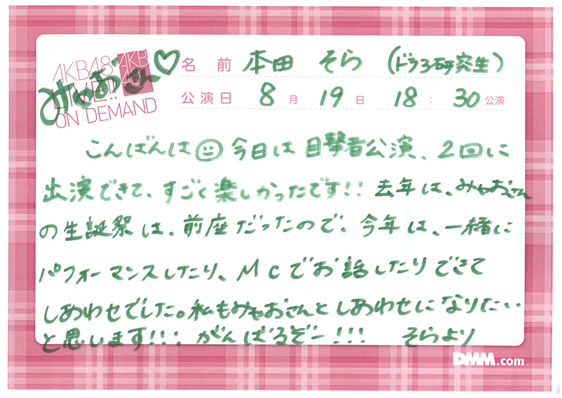 AKB48 AKB48
LIVE!!
ON DEMAND
みゃおさん♡
名前 本田 そら (ドラ3研究生)
公演日 8月 19日 18:30公演
こんばんは☺今日は目撃者公演、2回に
出演できて、すごく楽しかったです!! 去年は、みゃおさん
の生誕祭は、前座だったので、今年は、一緒に
パフォーマンスしたり、MCでお話したりできて
しあわせでした。私もみゃおさんとしあわせになりたい
と思います!!! がんばるぞー!!! そらより
DMM.com